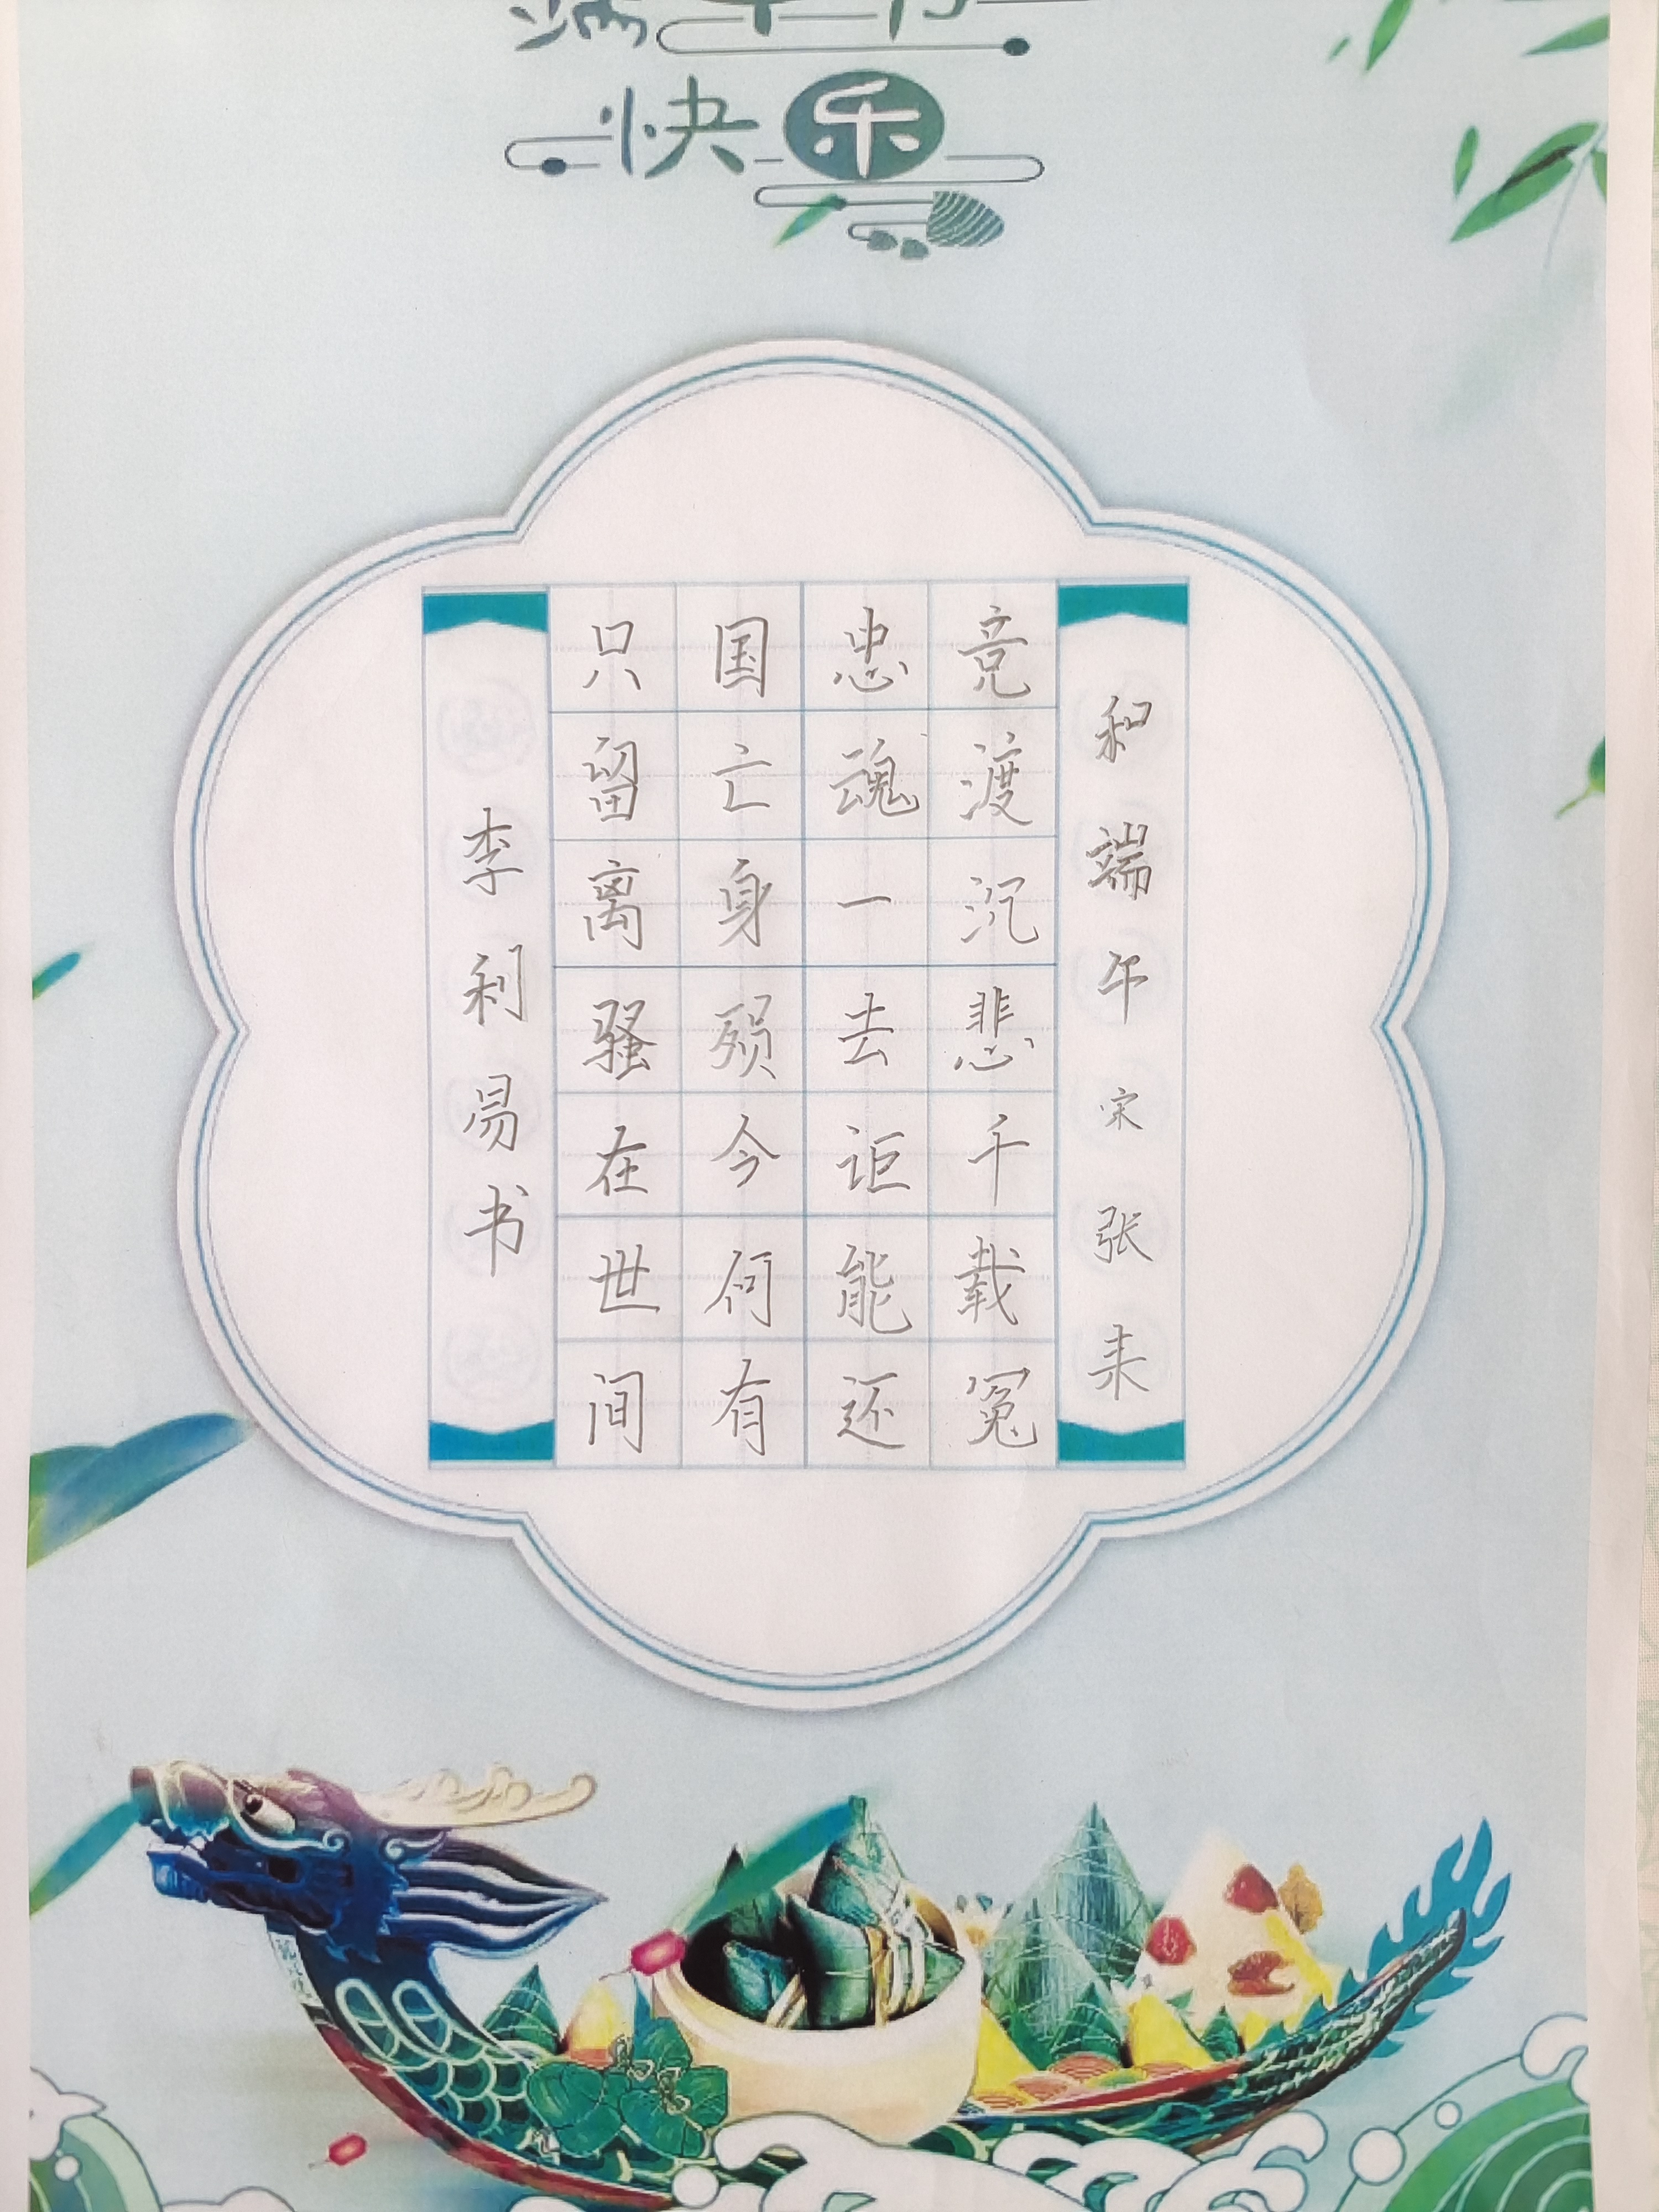 快乐
和端午 宋 张耒
竞渡沉悲千载冤
忠魂一去讵能还
国亡身殒今何有
只留离骚在世间
李利易书